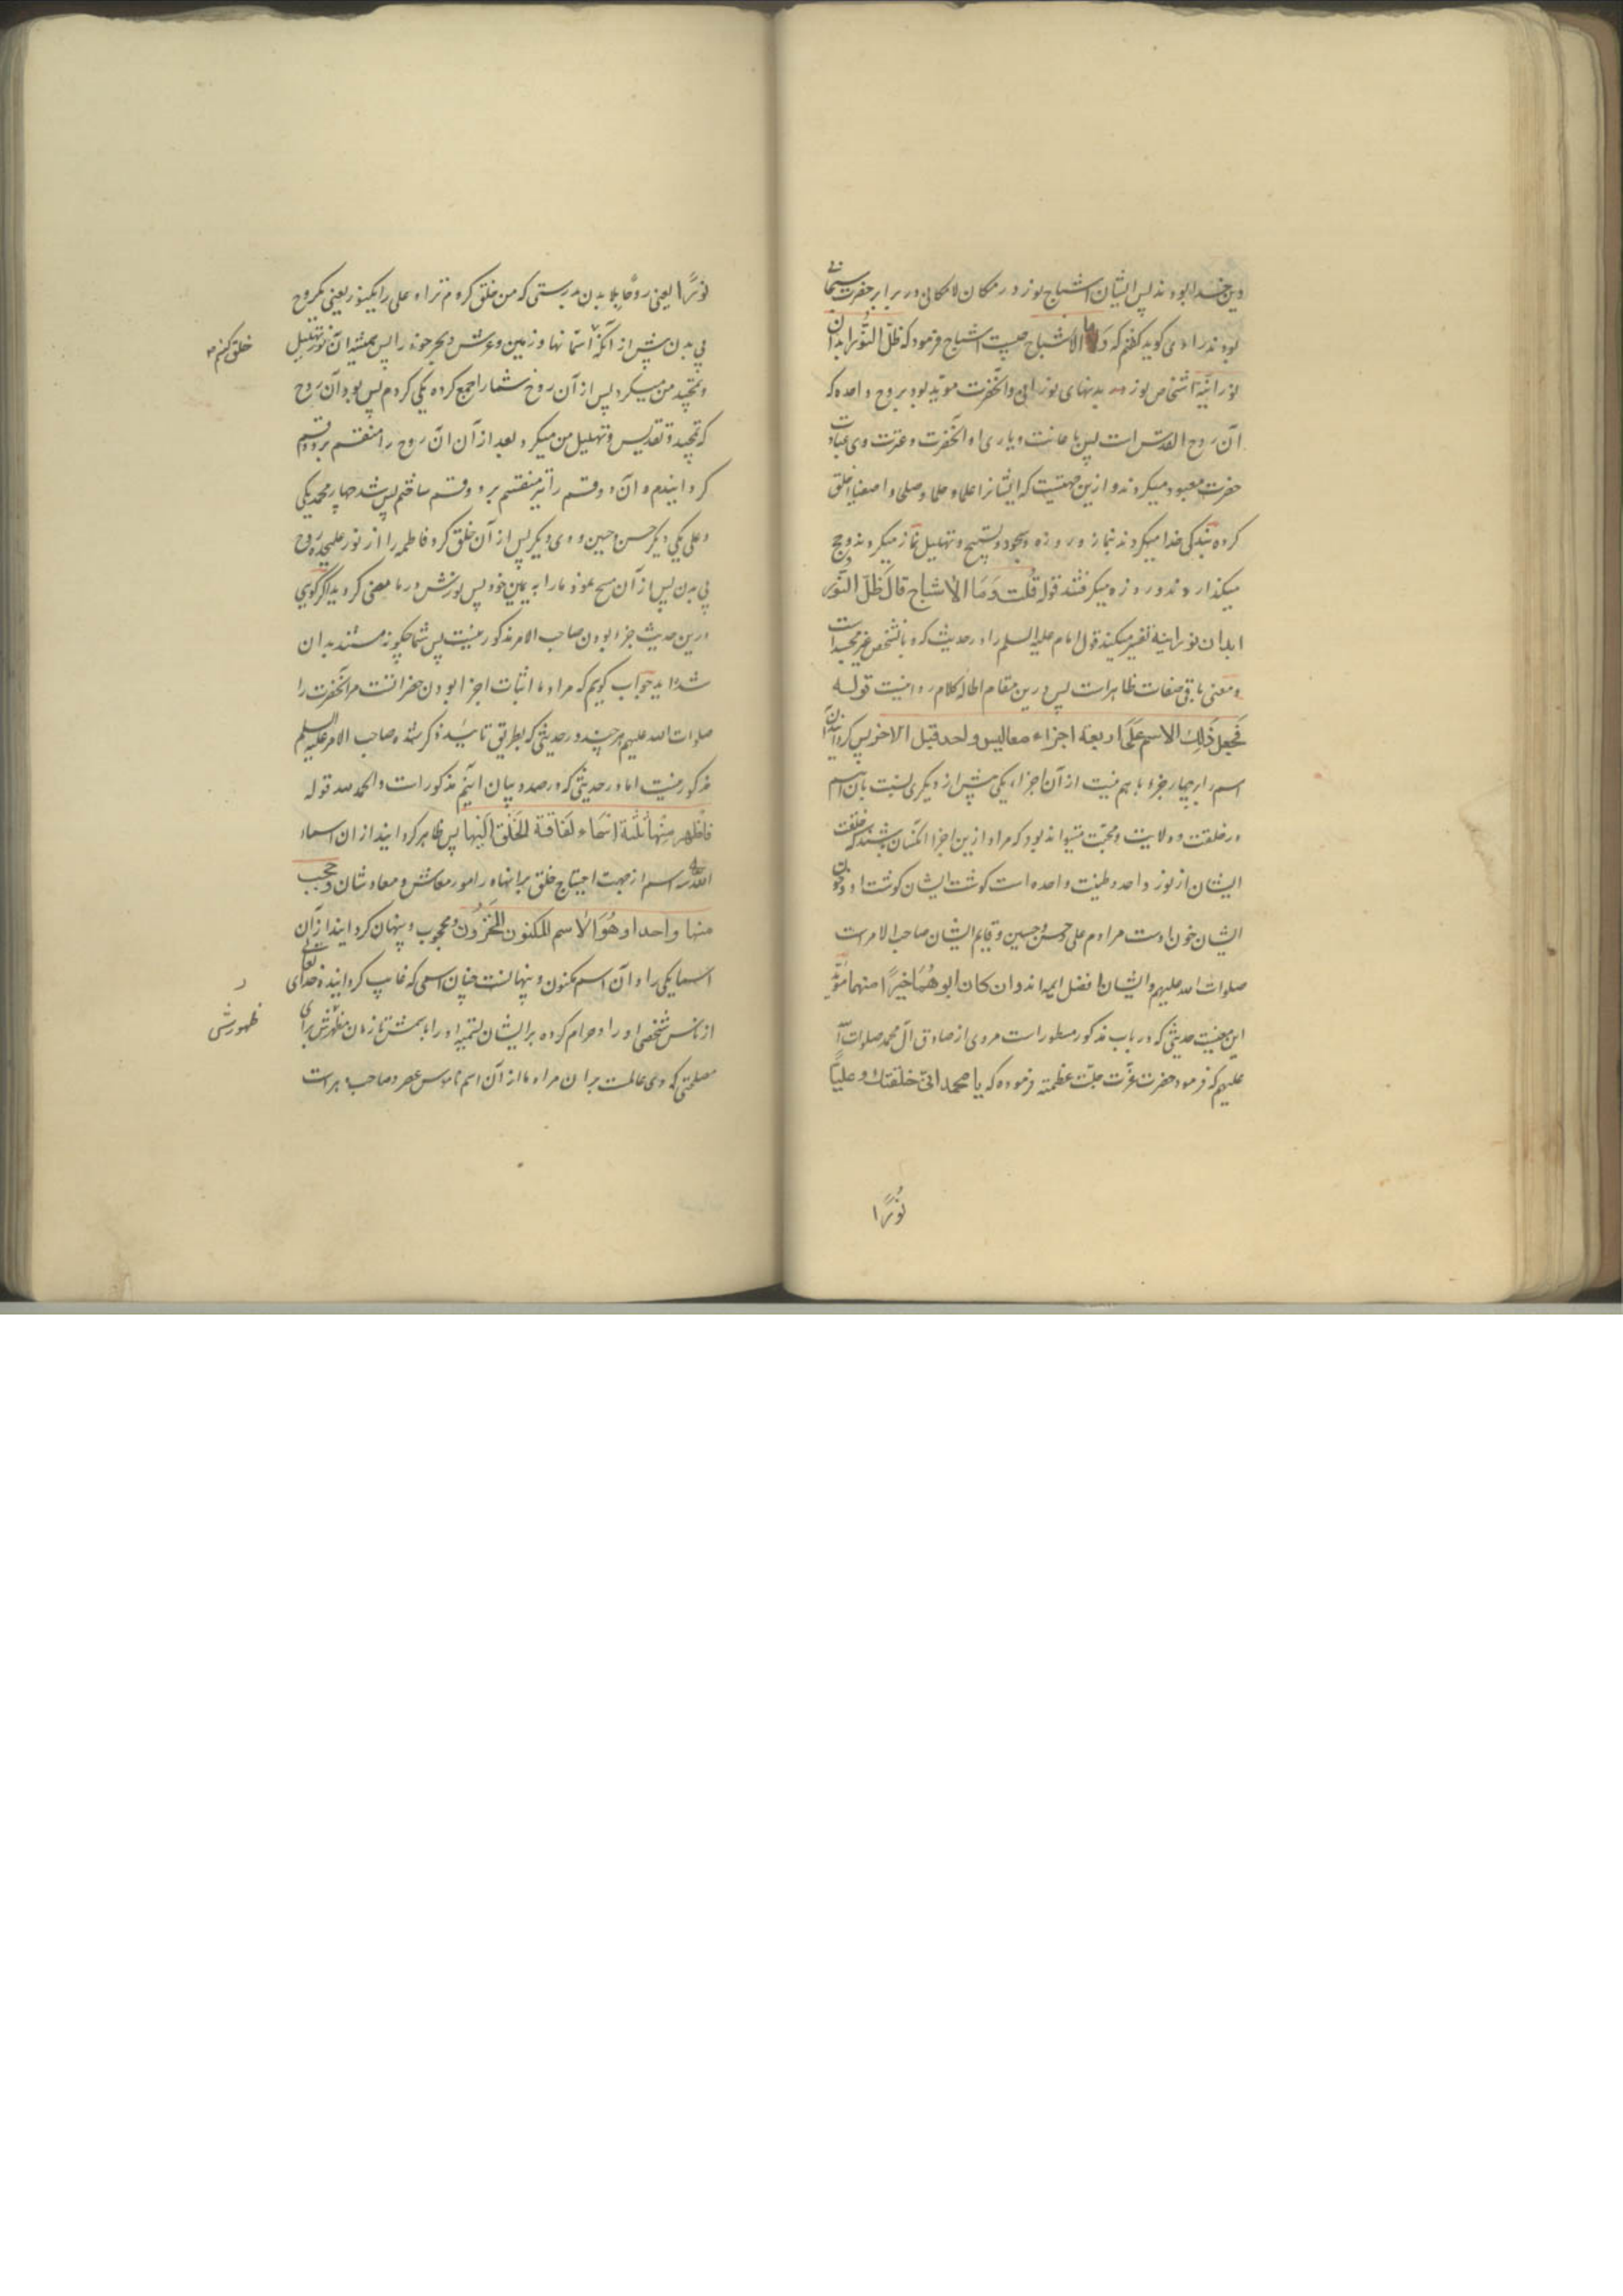 دین خدا بودند پس ایشان اشباح نور در مکان لامکانی در برابر حضرت سبحانی
بودند راوی گوید گفتم که وما الاشباح چیست اشباح فرمود که ظل النور ابدان
نورانیة اشخاص نور بدنهای نورانی و آنحضرت مؤید بود بروح واحده که
آن روح القدس است پس باعانت و یاری او آنحضرت و عترت وی عبادت
حضرت معبود میکردند و ازین جهتست که ایشانرا علما و حلما و صلحا و اصفیا خلق
کرده بندگی خدا میکردند بنماز و روزه و سجود و تسبیح و تهلیل نماز میکردند و حج
میگذاردند و روزه میگرفتند قوله قلت وما الاشباح قال ظل النور
ابدان نورانیة تفسیر میکند قول امام علیه السلم را در حدیث که
و معنی باقی صفات ظاهرات پس درین مقام اطاله کلام روا نیست قوله
فجعل ذلك الاسم على اربعة اجزاء معا لیس واحد قبل الاخر پس گردانید آن
اسم را بر چهار جزء با هم نیست از آن اجزا یکی پیش از دیگری نسبت بآن اسم
در خلقت و ولایت و محبت میتواند بود که مراد ازین اجزا آنکسان باشند که خلقت
ایشان از نور واحد و طینت واحده است گوشت ایشان گوشت او و خون
ایشان خون اوست مرادم علی و حسن و حسین و قایم ایشان صاحب الامر است
صلوات الله علیهم و ایشان افضل ایمه اند و ان کان ابوهما خیرا منهما مؤید
این معنیست حدیثی که در باب مذکور مسطور است مروی از صادق آل محمد صلوات الله
علیهم که فرمود حضرت عزت جلت عظمته فرموده که یا محمد انی خلقتك وعلیا
نورا
نورا یعنی روحا بلا بدن بدرستی که من خلق کردم ترا و علی را یکنور یعنی یکروح
بی بدن پیش از آنکه آسمانها و زمین و عرش و بحر خود را پس همیشه آن نور تهلیل
خلق کنم
و تمجید من میکرد پس از آن روح شما را جمع کرده یکی کردم پس بود آن روح
که تمجید و تقدیس و تهلیل من میکرد بعد از آن آن روح را منقسم بر دو قسم
گردانیدم و آن دو قسم را نیز منقسم بر دو قسم ساختم پس شد چهار محمد یکی
و علی یکی دیگر حسن حسین دوی دیگر پس از آن خلق کرد فاطمه را از نور علیحده روح
بی بدن پس از آن مسح نمود ما را به یمین خود پس نورش در ما مضی گردید اگر گویی
درین حدیث جزء بودن صاحب الامر مذکور نیست پس شما چگونه مستند به آن
شده اید جواب گویم که مراد ما اثبات اجزا بودن حضراتست مر آنحضرت را
صلوات الله علیهم هر چند در حدیثی که بطریق تأیید ذکر شده صاحب الامر علیه السلم
مذکور نیست اما در حدیثی که در صدد بیان آنیم مذکور است والحمد لله قوله
فاظهر منها ثلثة اسماء لفاقة الخلق الیها پس ظاهر گردانید از ان اسماء
الله سه اسم از جهت احتیاج خلق بر آنها در امور معاش و معادشان و حجب
منها واحدا وهو الاسم المکنون المخزون و محجوب و پنهان گردانید از آن
اسما یکی را و آن اسم مکنون و پنهانست چنان اسمی که غایب گردانیده خدای تعالی
از ناس شخص او را و حرام کرده بر ایشان تسمیه او را باسمش تا زمان ظهورش برای
ظهورش
مصلحتی که وی عالمست بر آن مراد ما از آن اسم ناموس عصر و صاحب دهر است